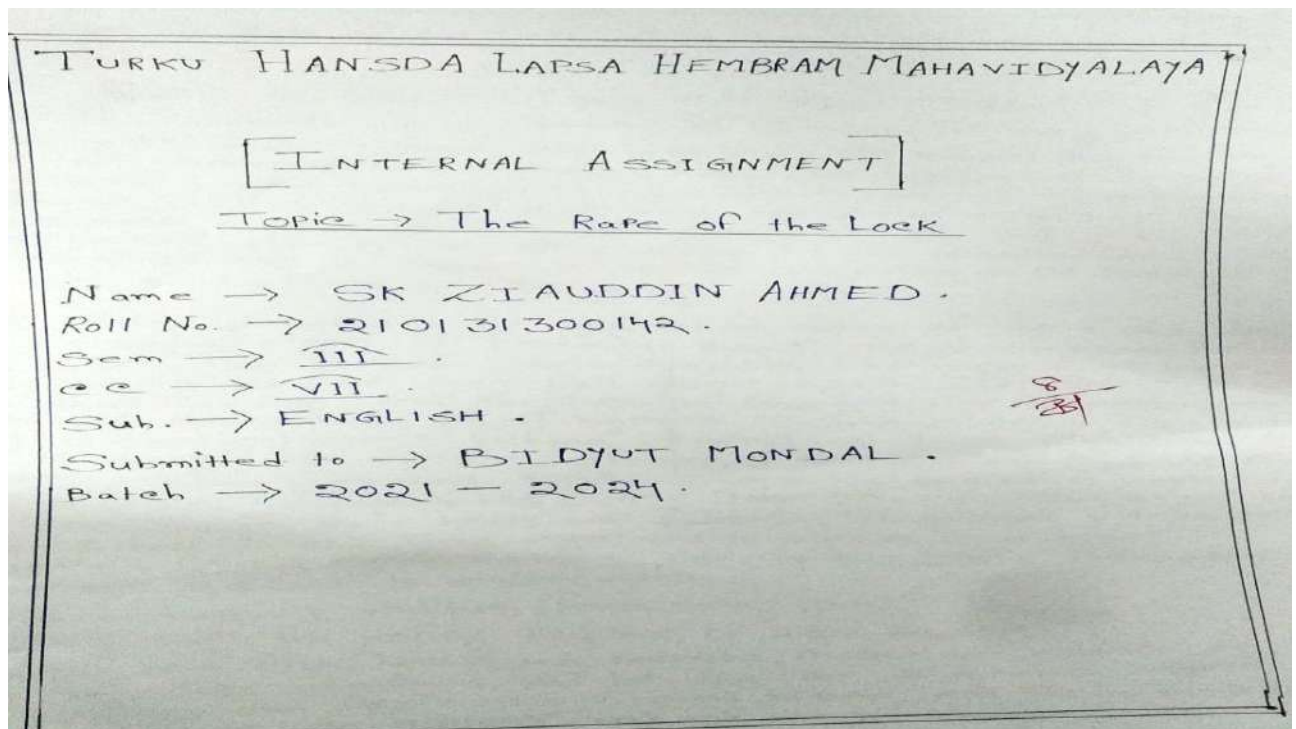 TURKU HANSDA LAPSA HEMBRAM MAHAVIDYALAYA
[INTERNAL ASSIGNMENT]
Topic → The Rape of the Lock
Name → SK ZIAUDDIN AHMED.
Roll No. → 210131300142.
Sem → III.
CC → VII.
Sub. → ENGLISH.
8
Submitted to → BIDYUT MONDAL.
Batch → 2021 - 2024.